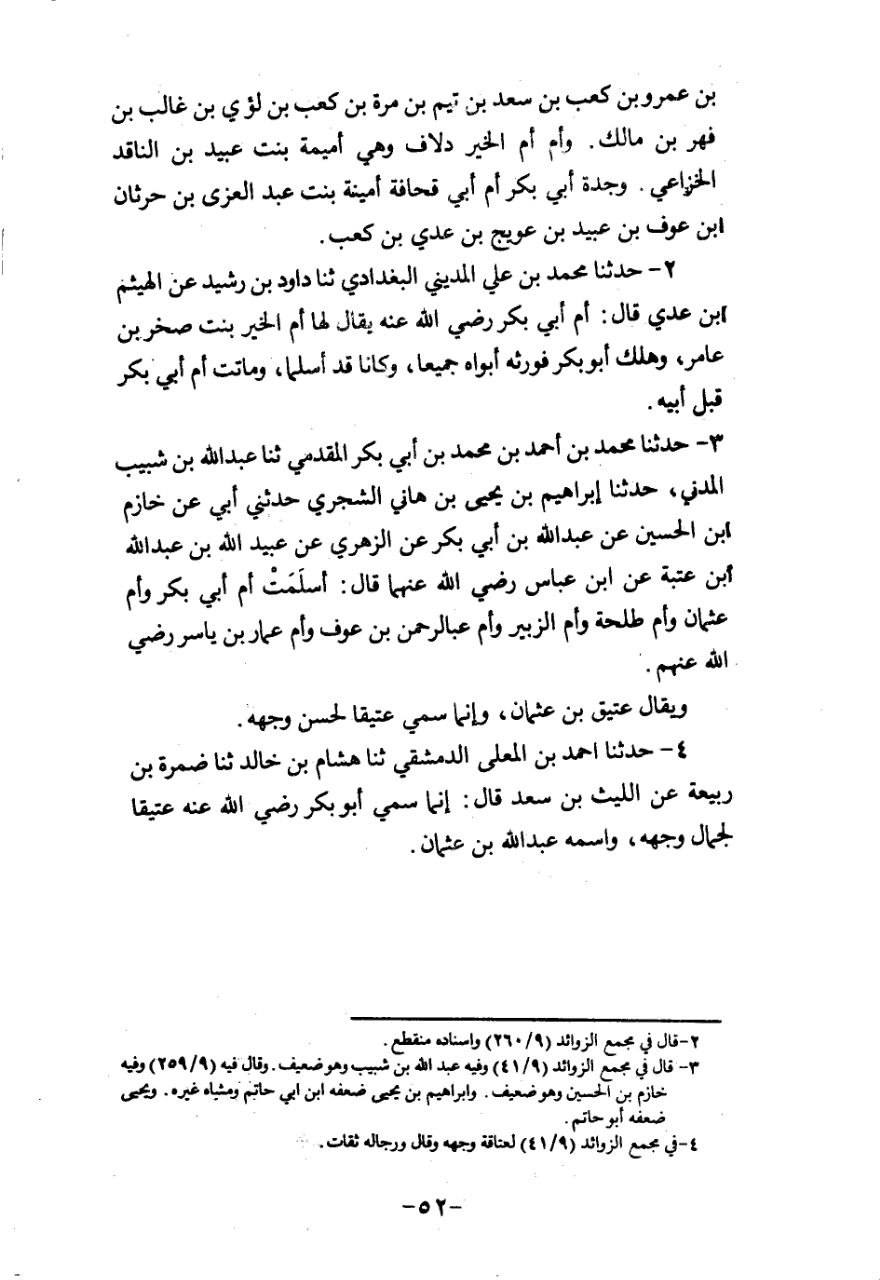 بن عمرو بن كعب بن سعد بن تيم بن مرة بن كعب بن لؤي بن غالب بن
فهر بن مالك. وأم أم الخير دلاف وهي أميمة بنت عبيد بن الناقد
الخزاعي. وجدة أبي بكر أم أبي قحافة أمينة بنت عبد العزى بن حرثان
ابن عوف بن عبيد بن عويج بن عدي بن كعب.
٢- حدثنا محمد بن علي المديني البغدادي ثنا داود بن رشيد عن الهيثم
ابن عدي قال: أم أبي بكر رضي الله عنه يقال لها أم الخير بنت صخر بن
عامر، وهلك أبو بكر فورثه أبواه جميعا، وكانا قد أسلما، وماتت أم أبي بكر
قبل أبيه.
٣- حدثنا محمد بن أحمد بن محمد بن أبي بكر المقدمي ثنا عبدالله بن شبيب
المدني، حدثنا إبراهيم بن يحيى بن هاني الشجري حدثني أبي عن خازم
ابن الحسين عن عبدالله بن أبي بكر عن الزهري عن عبيد الله بن عبدالله
أبن عتبة عن ابن عباس رضي الله عنهما قال: أسلَمَتْ أم أبي بكر وأم
عثمان وأم طلحة وأم الزبير وأم عبالرحمن بن عوف وأم عمار بن ياسر رضي
الله عنهم.
ويقال عتيق بن عثمان، وإنما سمي عتيقا لحسن وجهه.
٤- حدثنا احمد بن المعلى الدمشقي ثنا هشام بن خالد ثنا ضمرة بن
ربيعة عن الليث بن سعد قال: إنما سمي أبو بكر رضي الله عنه عتيقا
لجمال وجهه، واسمه عبدالله بن عثمان.
٢-قال في مجمع الزوائد (٢٦٠/٩) واسناده منقطع.
٣- قال في مجمع الزوائد (٤١/٩) وفيه عبد الله بن شبيب وهو ضعيف. وقال فيه (٢٥٩/٩) وفيه
خازم بن الحسين وهو ضعيف. وابراهيم بن يحيى ضعفه ابن ابي حاتم ومشاه غيره. ويحيى
ضعفه أبو حاتم.
٤-في مجمع الزوائد (٤١/٩) لعتاقة وجهه وقال ورجاله ثقات.
-٥٢-